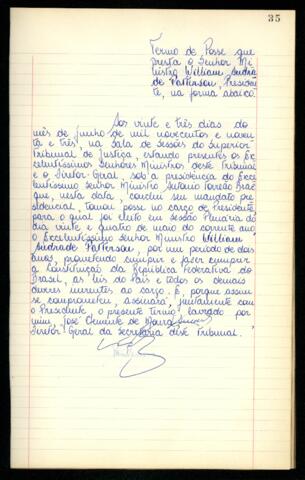 35
Termo de Posse que
presta o Senhor Mi-
nistro William Andra-
de Patterson, Presiden-
te, na forma abaixo.
Aos vinte e três dias do
mês de junho de mil novecentos e noven-
ta e três, na sala de sessões do Superior
Tribunal de Justiça, estando presentes os Ex-
celentíssimos Senhores Ministros deste Tribunal
e o Diretor-Geral, sob a presidência do Exce-
lentíssimo Senhor Ministro Antônio Torreão Braz
que, nesta data, conclui seu mandato pre-
sidencial, tomou posse no cargo de Presidente
para o qual foi eleito em Sessão Plenária do
dia vinte e quatro de maio do corrente ano
o Excelentíssimo Senhor Ministro William
Andrade Patterson, por um período de dois
anos, prometendo cumprir e fazer cumprir
a Constituição da República Federativa do
Brasil, as leis do País e todos os demais
deveres inerentes ao cargo. E, porque assim
se comprometeu, assinará, juntamente com
o Presidente, o presente termo, lavrado por
mim, José Clemente de Moura,
Diretor-Geral da Secretaria deste Tribunal.